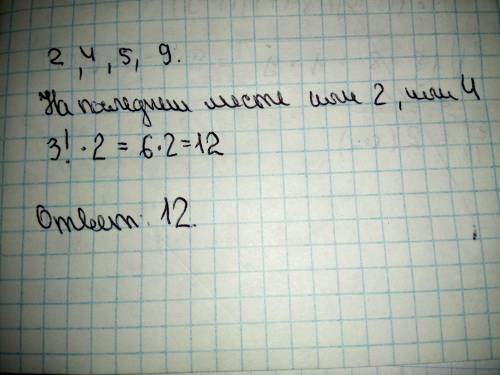 2, 4, 5, 9.
На последнем месте или 2, или 4
3! · 2 = 6 · 2 = 12
Ответ: 12.